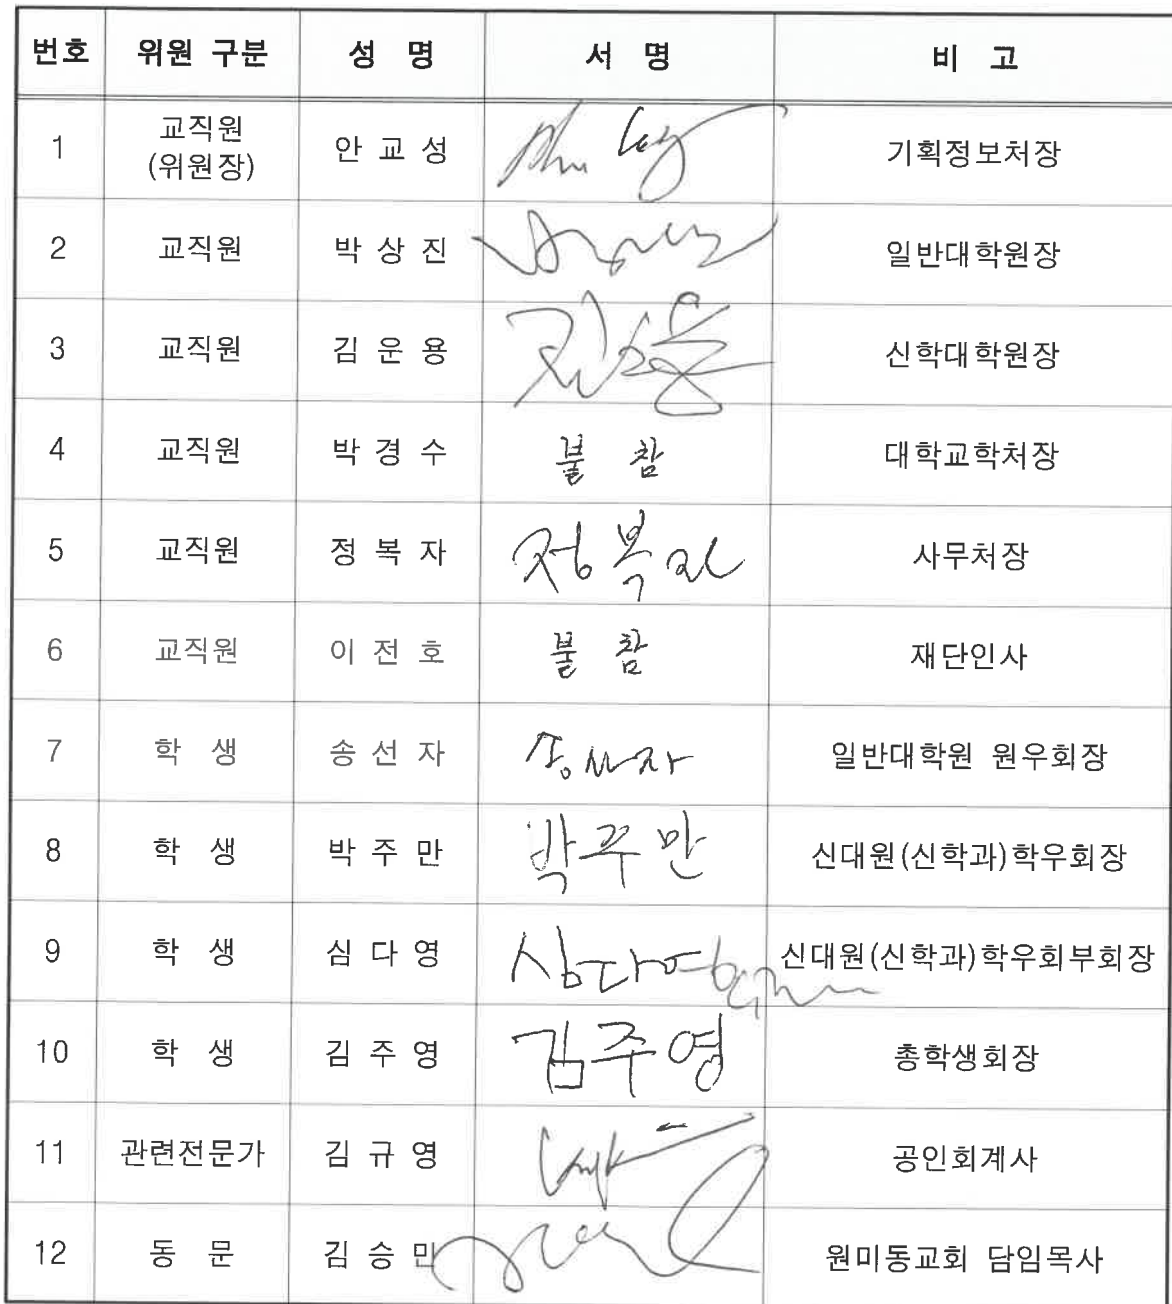 번호 위원 구분 성 명 서 명 비 고
1 교직원 (위원장) 안 교 성 기획정보처장
2 교직원 박 상 진 일반대학원장
3 교직원 김 운 용 신학대학원장
4 교직원 박 경 수 불 참 대학교학처장
5 교직원 정 복 자 정복자 사무처장
6 교직원 이 전 호 불 참 재단인사
7 학 생 송 선 자 송선자 일반대학원 원우회장
8 학 생 박 주 만 박주만 신대원(신학과)학우회장
9 학 생 심 다 영 심다영 신대원(신학과)학우회부회장
10 학 생 김 주 영 김주영 총학생회장
11 관련전문가 김 규 영 공인회계사
12 동 문 김 승 민 원미동교회 담임목사